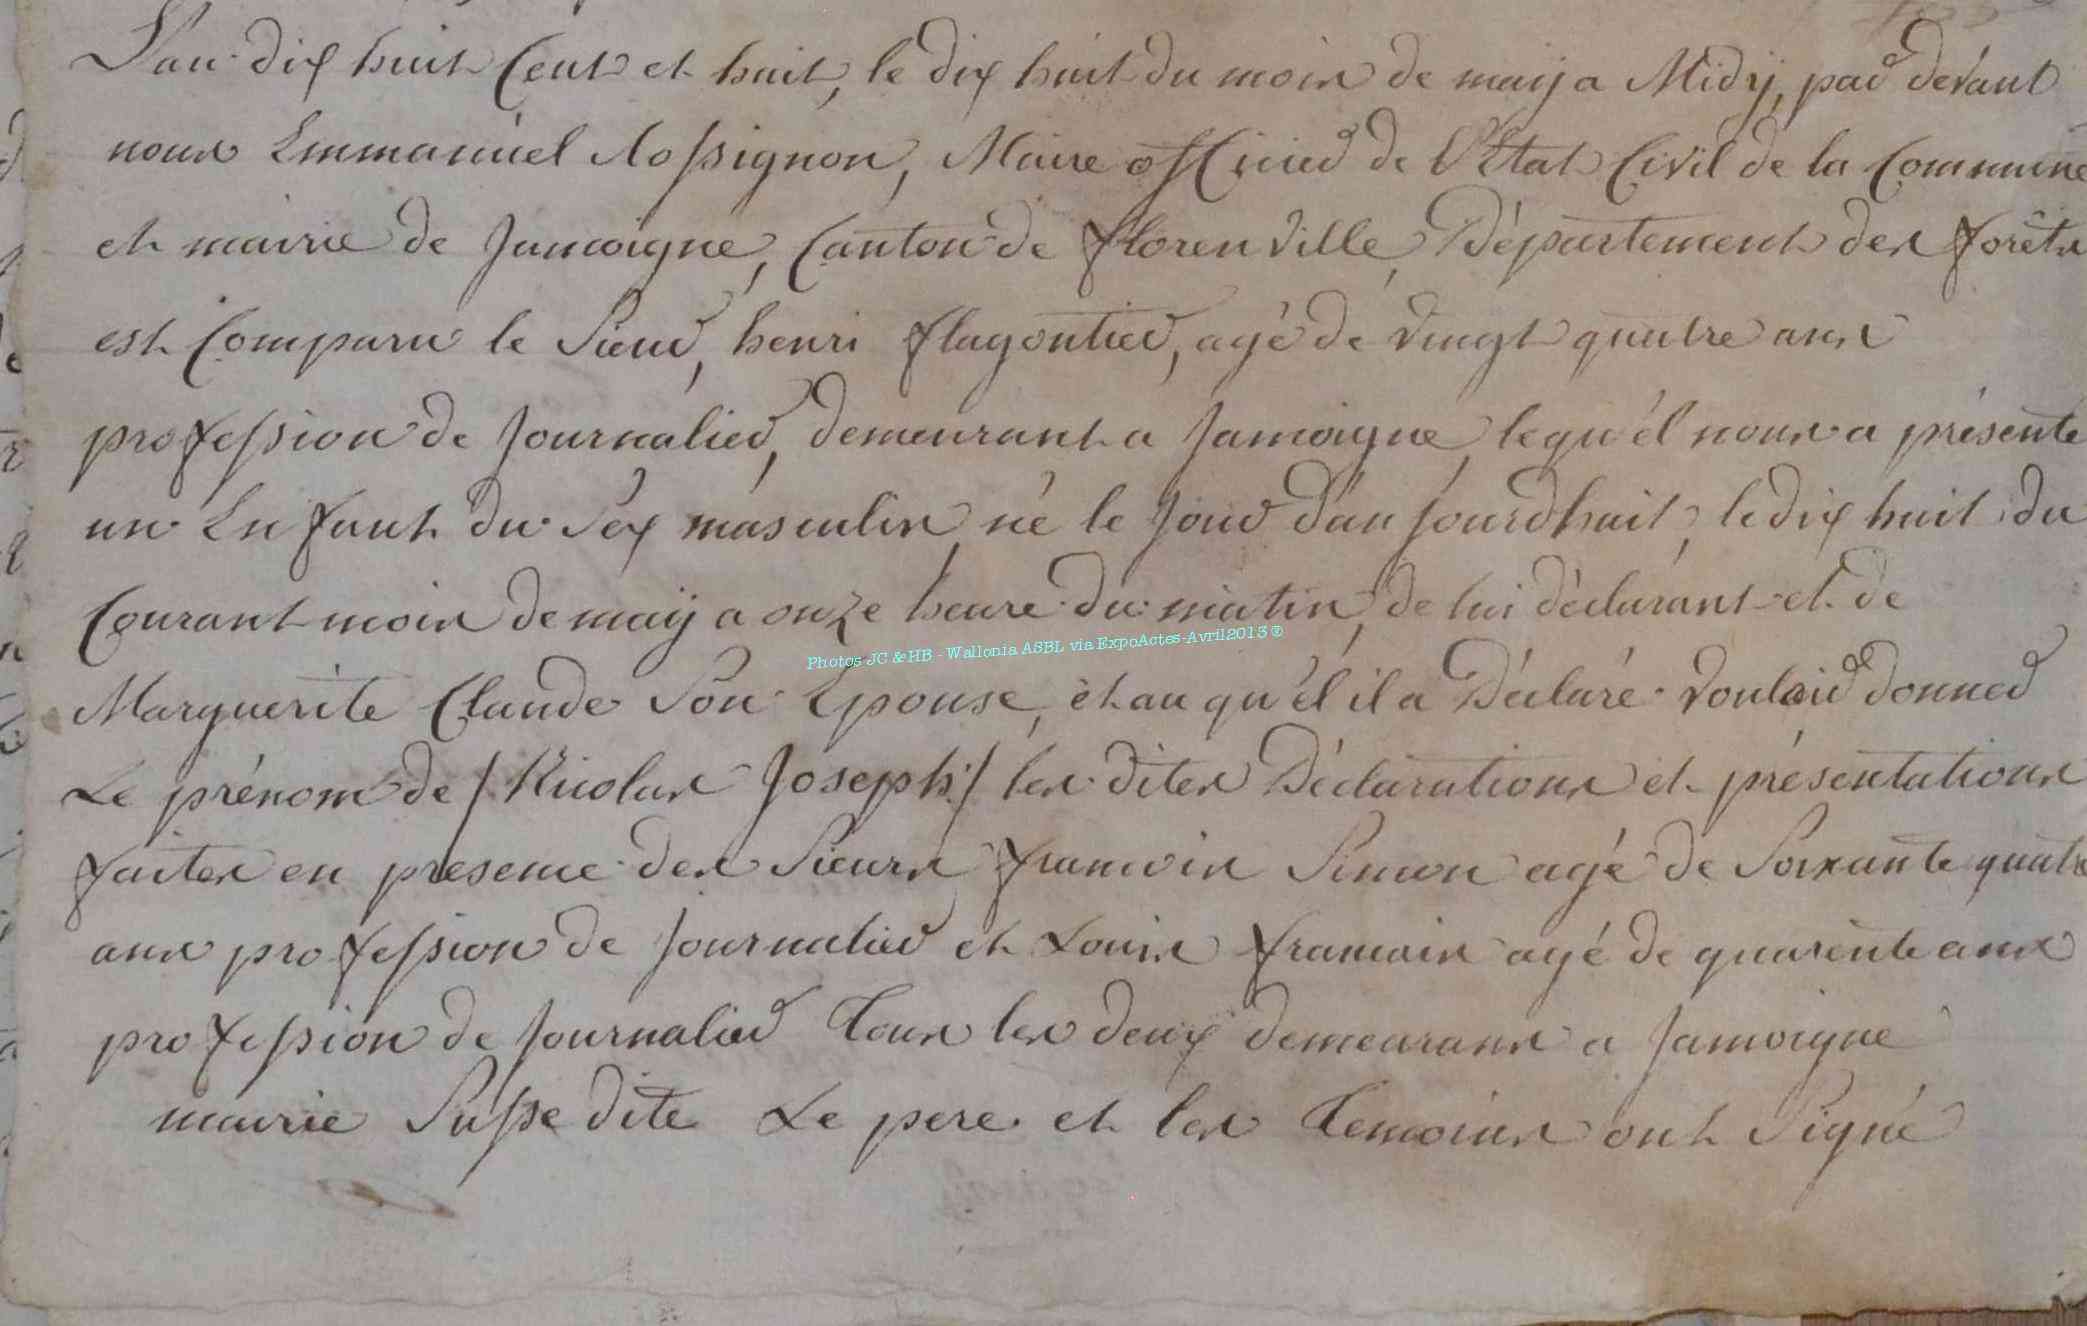 L'an dix huit Cent et huit, le dix huit du mois de maÿ a Midÿ, par devant
nous Emmanuel Rossignon, Maire officier de l'Etat Civil de la Commune
et mairie de Jamoigne, Canton de florenville, Département des forêts
est Comparu le Sieur, henri flagontier, agé de vingt quatre ans
profession de Journalier, demeurant a Jamoigne, lequ'él nous a présenté
un Enfant du Sex masculin né le Jour d'au Jourdhuit, le dix huit du
Courant mois de maÿ a onze heure du matin, de lui déclarant et de
Marguerite Claude Son Epouse, et au qu'él il a Déclaré vouloir donner
Le prénom de / Nicolas Joseph / les dites Déclarations et présentations
faites en presence des Sieurs francois Simon agé de Soixante quatre
ans profession de Journalier et Louis francois agé de quarente ans
profession de Journalier Tous les deux demeurans a Jamoigne
mairie Sussedite Le pere et les Temoins ont Signé
Photos JC & HB - Wallonia ASBL via ExpoActes-Avril2013 ®